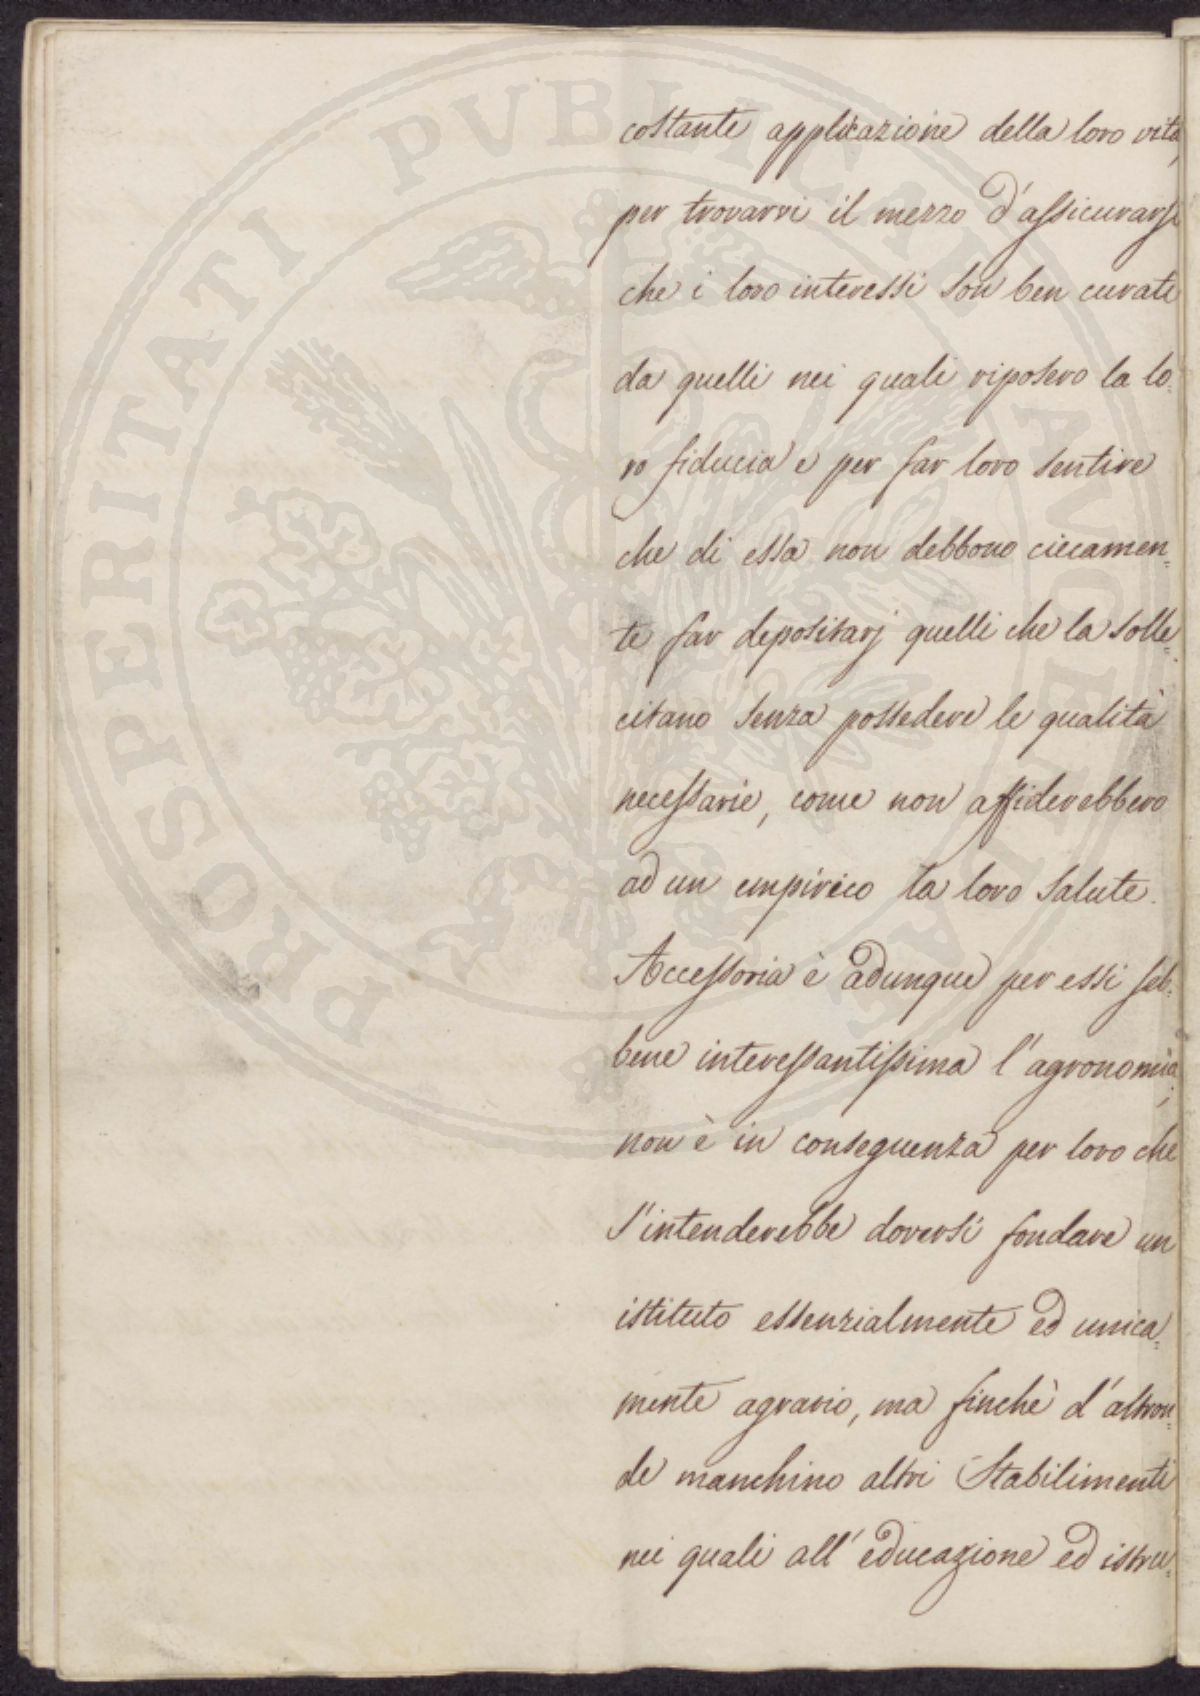 costante applicazione della loro vita,
per trovarvi il mezzo d'assicurarsi
che i loro interessi son ben curati
da quelli nei quali riposero la lo-
ro fiducia e per far loro sentire
che di essa non debbono ciecamen=
te far depositarj quelli che la solle=
citano senza possedere le qualità
necessarie, come non affiderebbero
ad un empirico la loro salute.
Accessoria è adunque per essi seb=
bene interessantissima l'agronomia;
non è in conseguenza per loro che
s'intenderebbe doversi fondare un
istituto essenzialmente ed unica=
mente agrario, ma finchè d'altron=
de manchino altri Stabilimenti
nei quali all'educazione ed istru=
PROSPERITATI PUBLICAE AUGENDAE